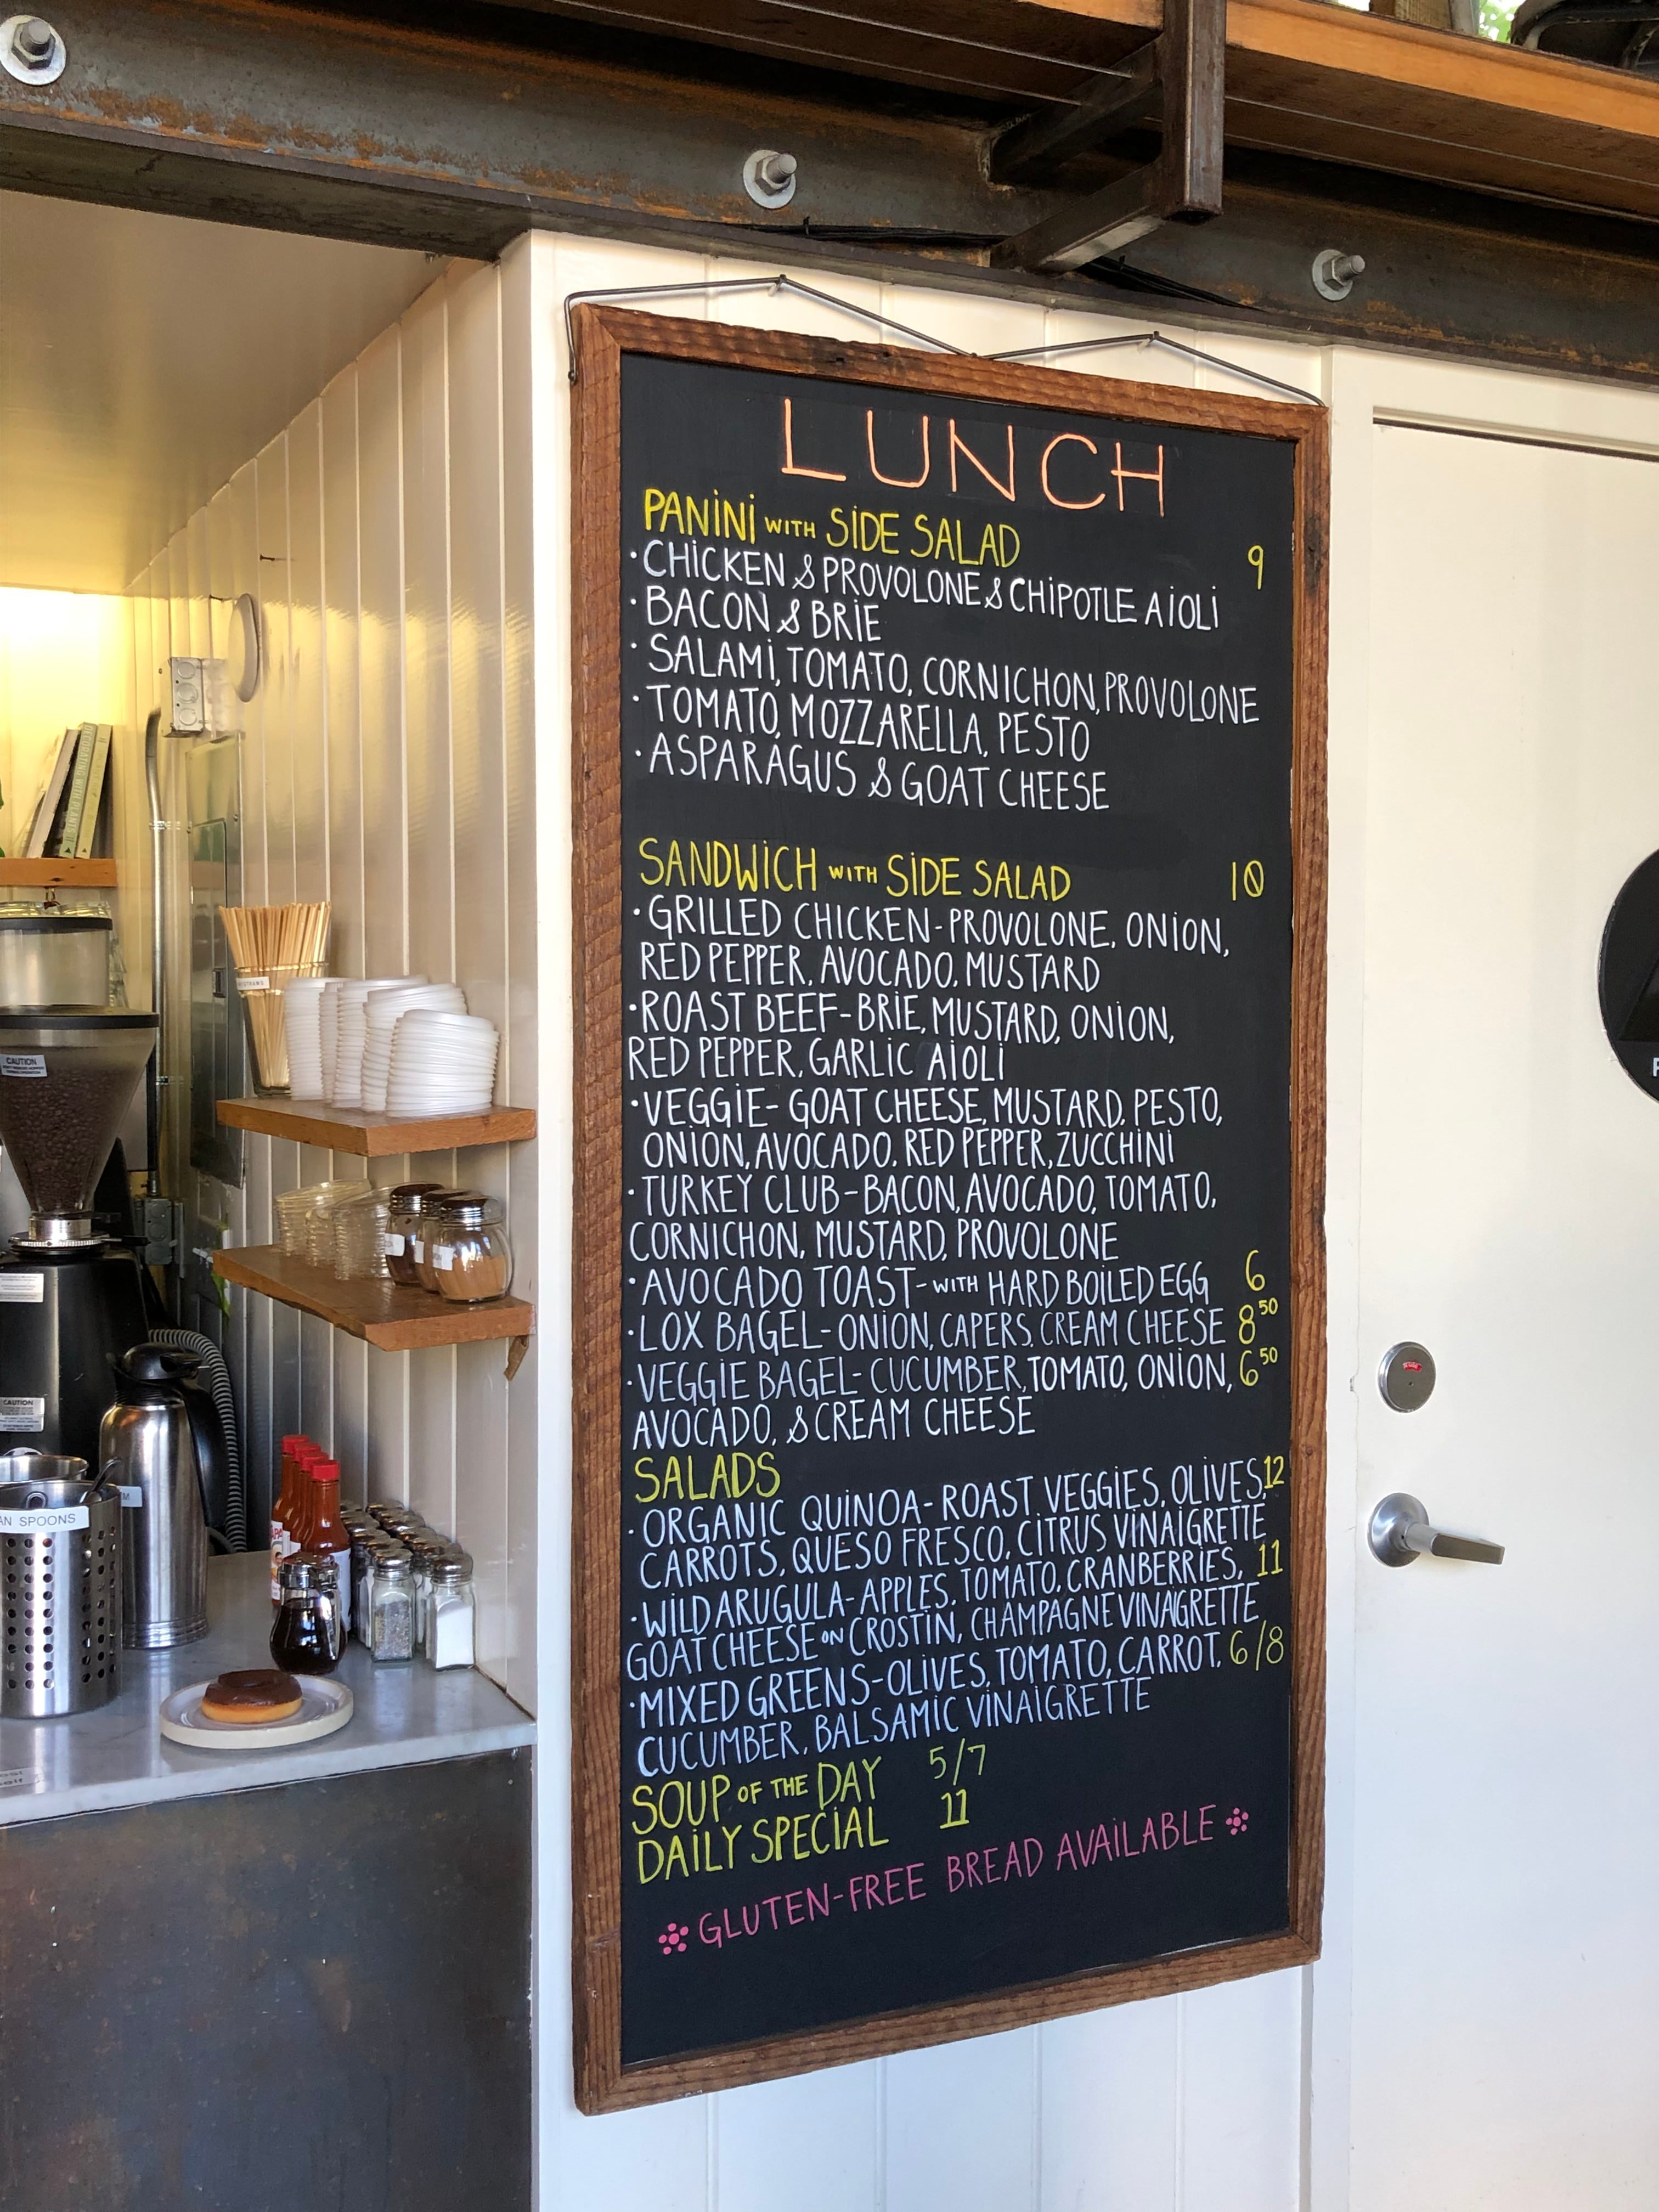 LUNCH
PANINI WITH SIDE SALAD 9
·CHICKEN & PROVOLONE & CHIPOTLE AIOLI
·BACON & BRIE
·SALAMI, TOMATO, CORNICHON, PROVOLONE
·TOMATO, MOZZARELLA, PESTO
·ASPARAGUS & GOAT CHEESE
SANDWICH WITH SIDE SALAD 10
·GRILLED CHICKEN-PROVOLONE, ONION,
RED PEPPER, AVOCADO, MUSTARD
·ROAST BEEF-BRIE, MUSTARD, ONION,
RED PEPPER, GARLIC AIOLI
·VEGGIE- GOAT CHEESE, MUSTARD, PESTO,
ONION, AVOCADO, RED PEPPER, ZUCCHINI
·TURKEY CLUB-BACON, AVOCADO, TOMATO,
CORNICHON, MUSTARD, PROVOLONE
·AVOCADO TOAST-WITH HARD BOILED EGG 6
·LOX BAGEL-ONION, CAPERS, CREAM CHEESE 8 50
·VEGGIE BAGEL-CUCUMBER, TOMATO, ONION, 6 50
AVOCADO, & CREAM CHEESE
SALADS
·ORGANIC QUINOA-ROAST VEGGIES, OLIVES, 12
CARROTS, QUESO FRESCO, CITRUS VINAIGRETTE
·WILD ARUGULA-APPLES, TOMATO, CRANBERRIES, 11
GOAT CHEESE ON CROSTIN, CHAMPAGNE VINAIGRETTE
·MIXED GREENS-OLIVES, TOMATO, CARROT, 6/8
CUCUMBER, BALSAMIC VINAIGRETTE
SOUP OF THE DAY 5/7
DAILY SPECIAL 11
GLUTEN-FREE BREAD AVAILABLE
CAUTION
CAUTION
AN SPOONS